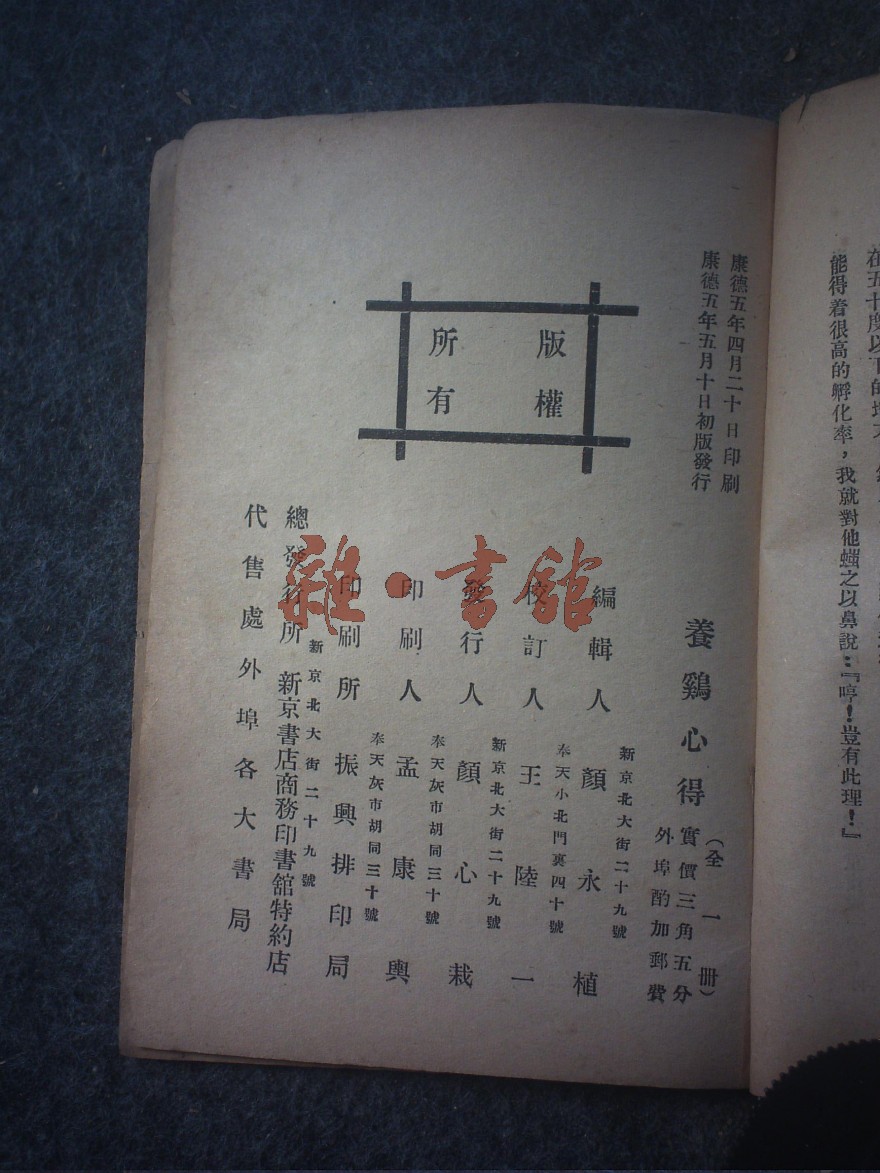 在五十度以下的
能得着很高的孵化率，我就對他嗤之以鼻說：『哼！豈有此理！』
康德五年四月二十日印刷
康德五年五月十日初版發行
版權
所有
養鷄心得（全一册）
實價三角五分
外埠酌加郵費
新京北大街二十九號
編輯人 顏永植
奉天小北門裏四十號
校訂人 王陸一
新京北大街二十九號
發行人 顏心栽
奉天灰市胡同三十號
印刷人 孟康興
奉天灰市胡同三十號
印刷所 振興排印局
新京北大街二十九號
總發行所 新京書店商務印書舘特約店
代售處外埠各大書局
雜·書舘